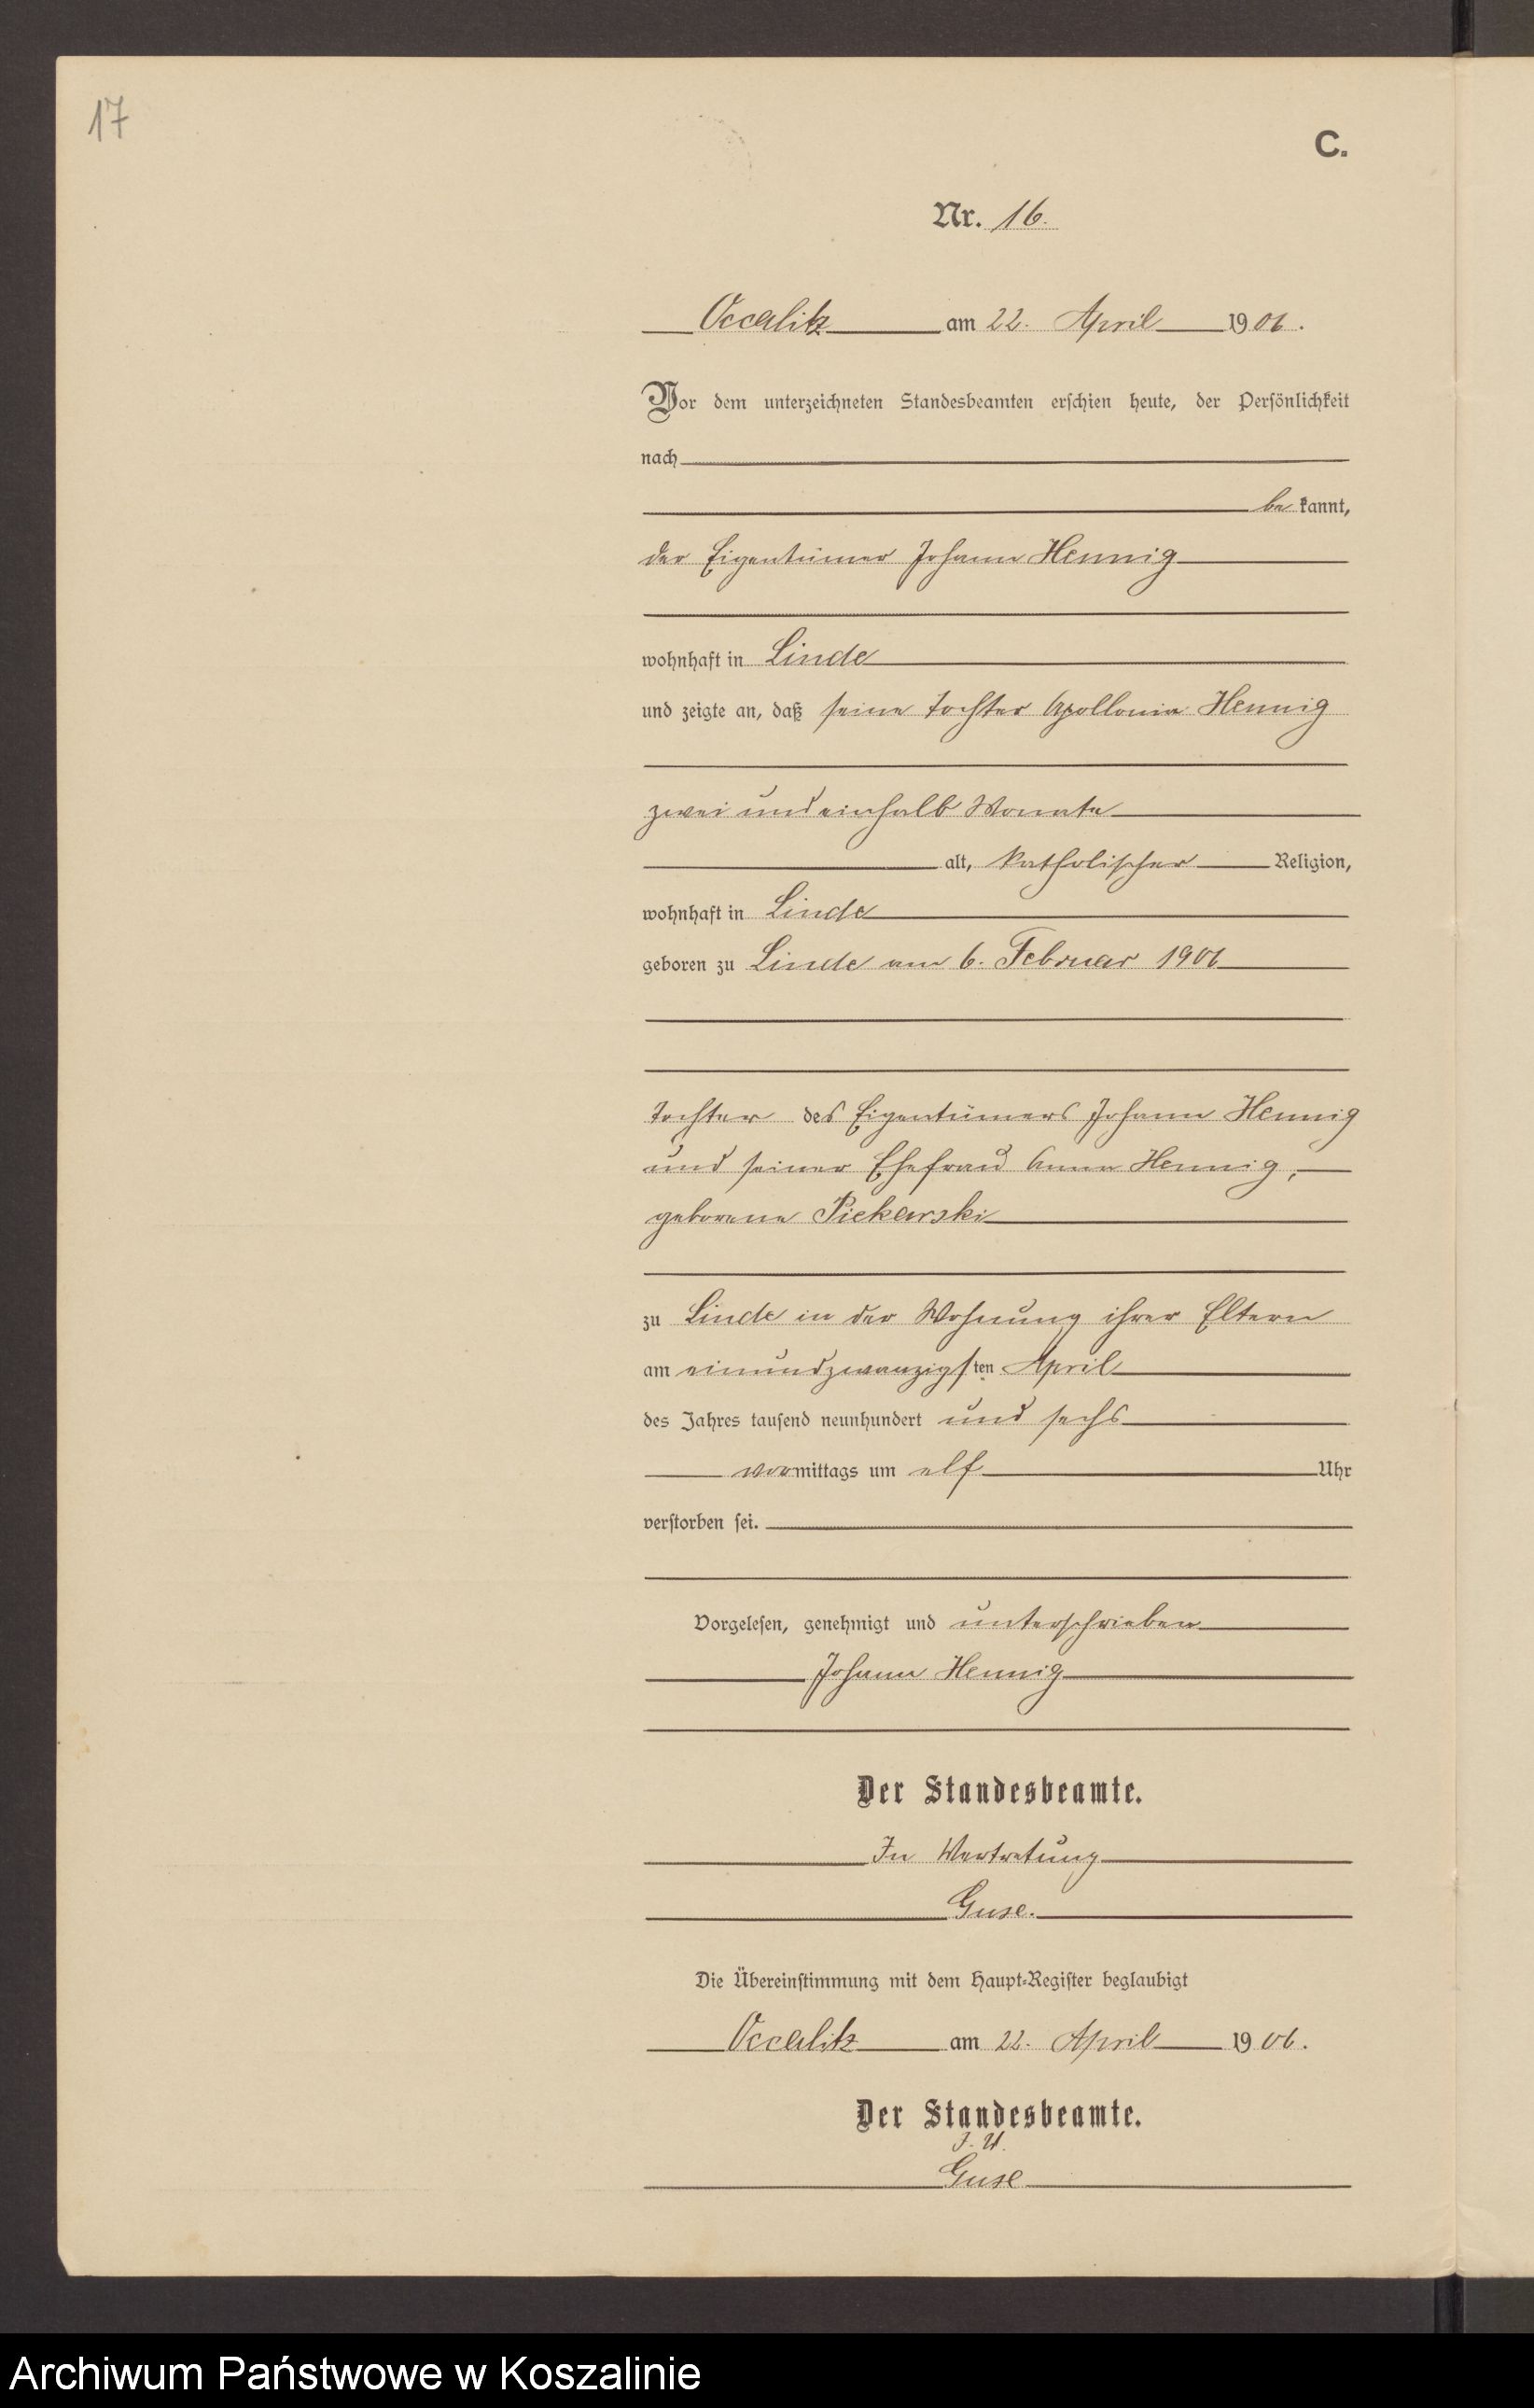 17
C.
Nr. 16.
Occalitz am 22. April 1906.
Vor dem unterzeichneten Standesbeamten erschien heute, der Persönlichkeit
nach
be kannt,
der Eigentümer Johann Hennig
wohnhaft in Linde
und zeigte an, daß seine Tochter Apollonia Hennig
zwei und einhalb Monate
alt, katholischer Religion,
wohnhaft in Linde
geboren zu Linde am 6. Februar 1906
Tochter des Eigentümers Johann Hennig
und seiner Ehefrau Anna Hennig,
geborene Piekarski
zu Linde in der Wohnung ihrer Eltern
am einundzwanzigsten April
des Jahres tausend neunhundert und sechs
vormittags um elf Uhr
verstorben sei.
Vorgelesen, genehmigt und unterschrieben
Johann Hennig
Der Standesbeamte.
In Vertretung
Guse.
Die Übereinstimmung mit dem Haupt-Register beglaubigt
Occalitz am 22. April 1906.
Der Standesbeamte.
J. V.
Guse
Archiwum Państwowe w Koszalinie